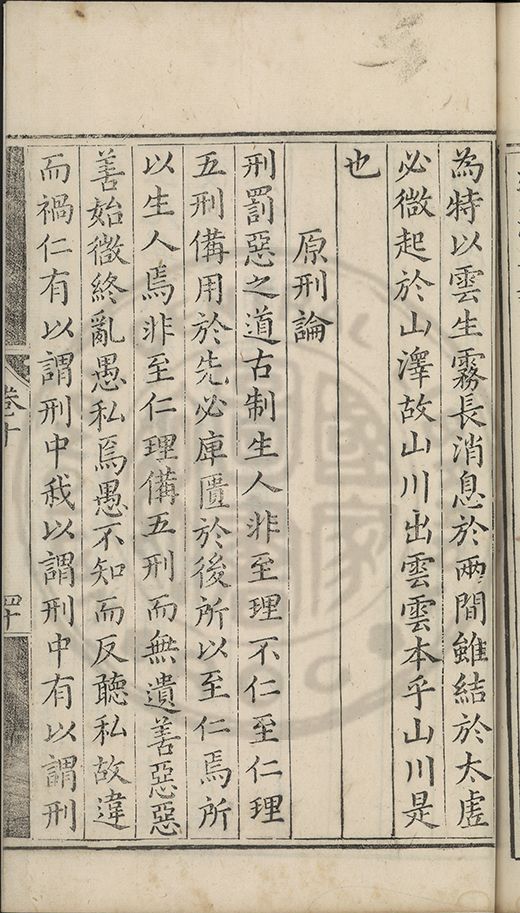 為特以雲生霧長消息於兩間雖結於太虛
必微起於山澤故山川出雲雲本乎山川是
也
原刑論
刑罰惡之道古制生人非至理不仁至仁理
五刑備用於先必庫匱於後所以至仁焉所
以生人焉非至仁理備五刑而無遺善惡惡
善始微終亂愚私焉愚不知而反聽私故違
而禍仁有以謂刑中我以謂刑中有以謂刑
卷十
四十